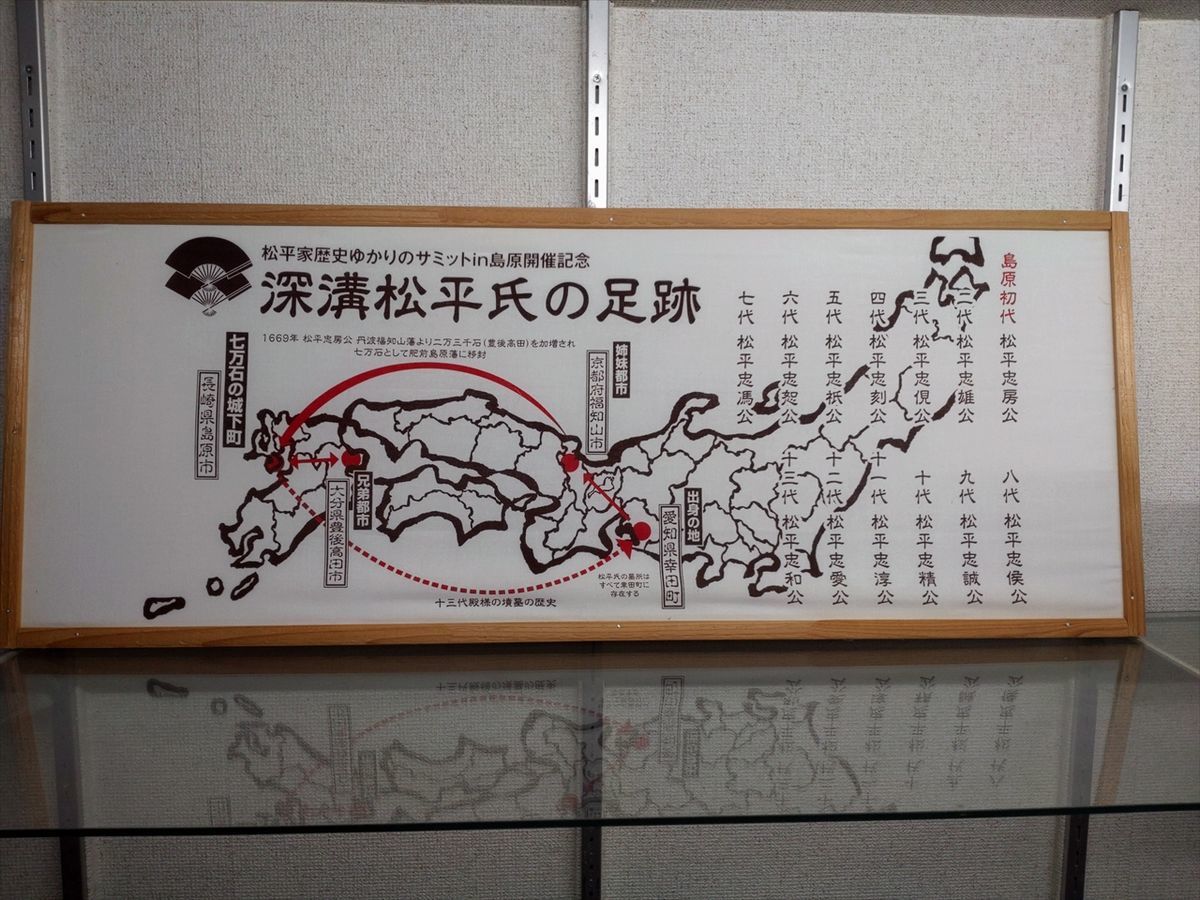 松平家歴史ゆかりのサミットin島原開催記念
深溝松平氏の足跡
1669年 松平忠房公 丹波福知山藩より二万三千石(豊後高田)を加増され
七万石として肥前島原藩に移封
七万石の城下町
長崎県島原市
兄弟都市
大分県豊後高田市
姉妹都市
京都府福知山市
出身の地
愛知県幸田町
松平氏の墓所は
すべて幸田町に
存在する
十三代殿様の墳墓の歴史
島原初代 松平忠房公
二代 松平忠雄公
三代 松平忠俔公
四代 松平忠刻公
五代 松平忠祇公
六代 松平忠恕公
七代 松平忠馮公
八代 松平忠侯公
九代 松平忠誠公
十代 松平忠精公
十一代 松平忠淳公
十二代 松平忠愛公
十三代 松平忠和公